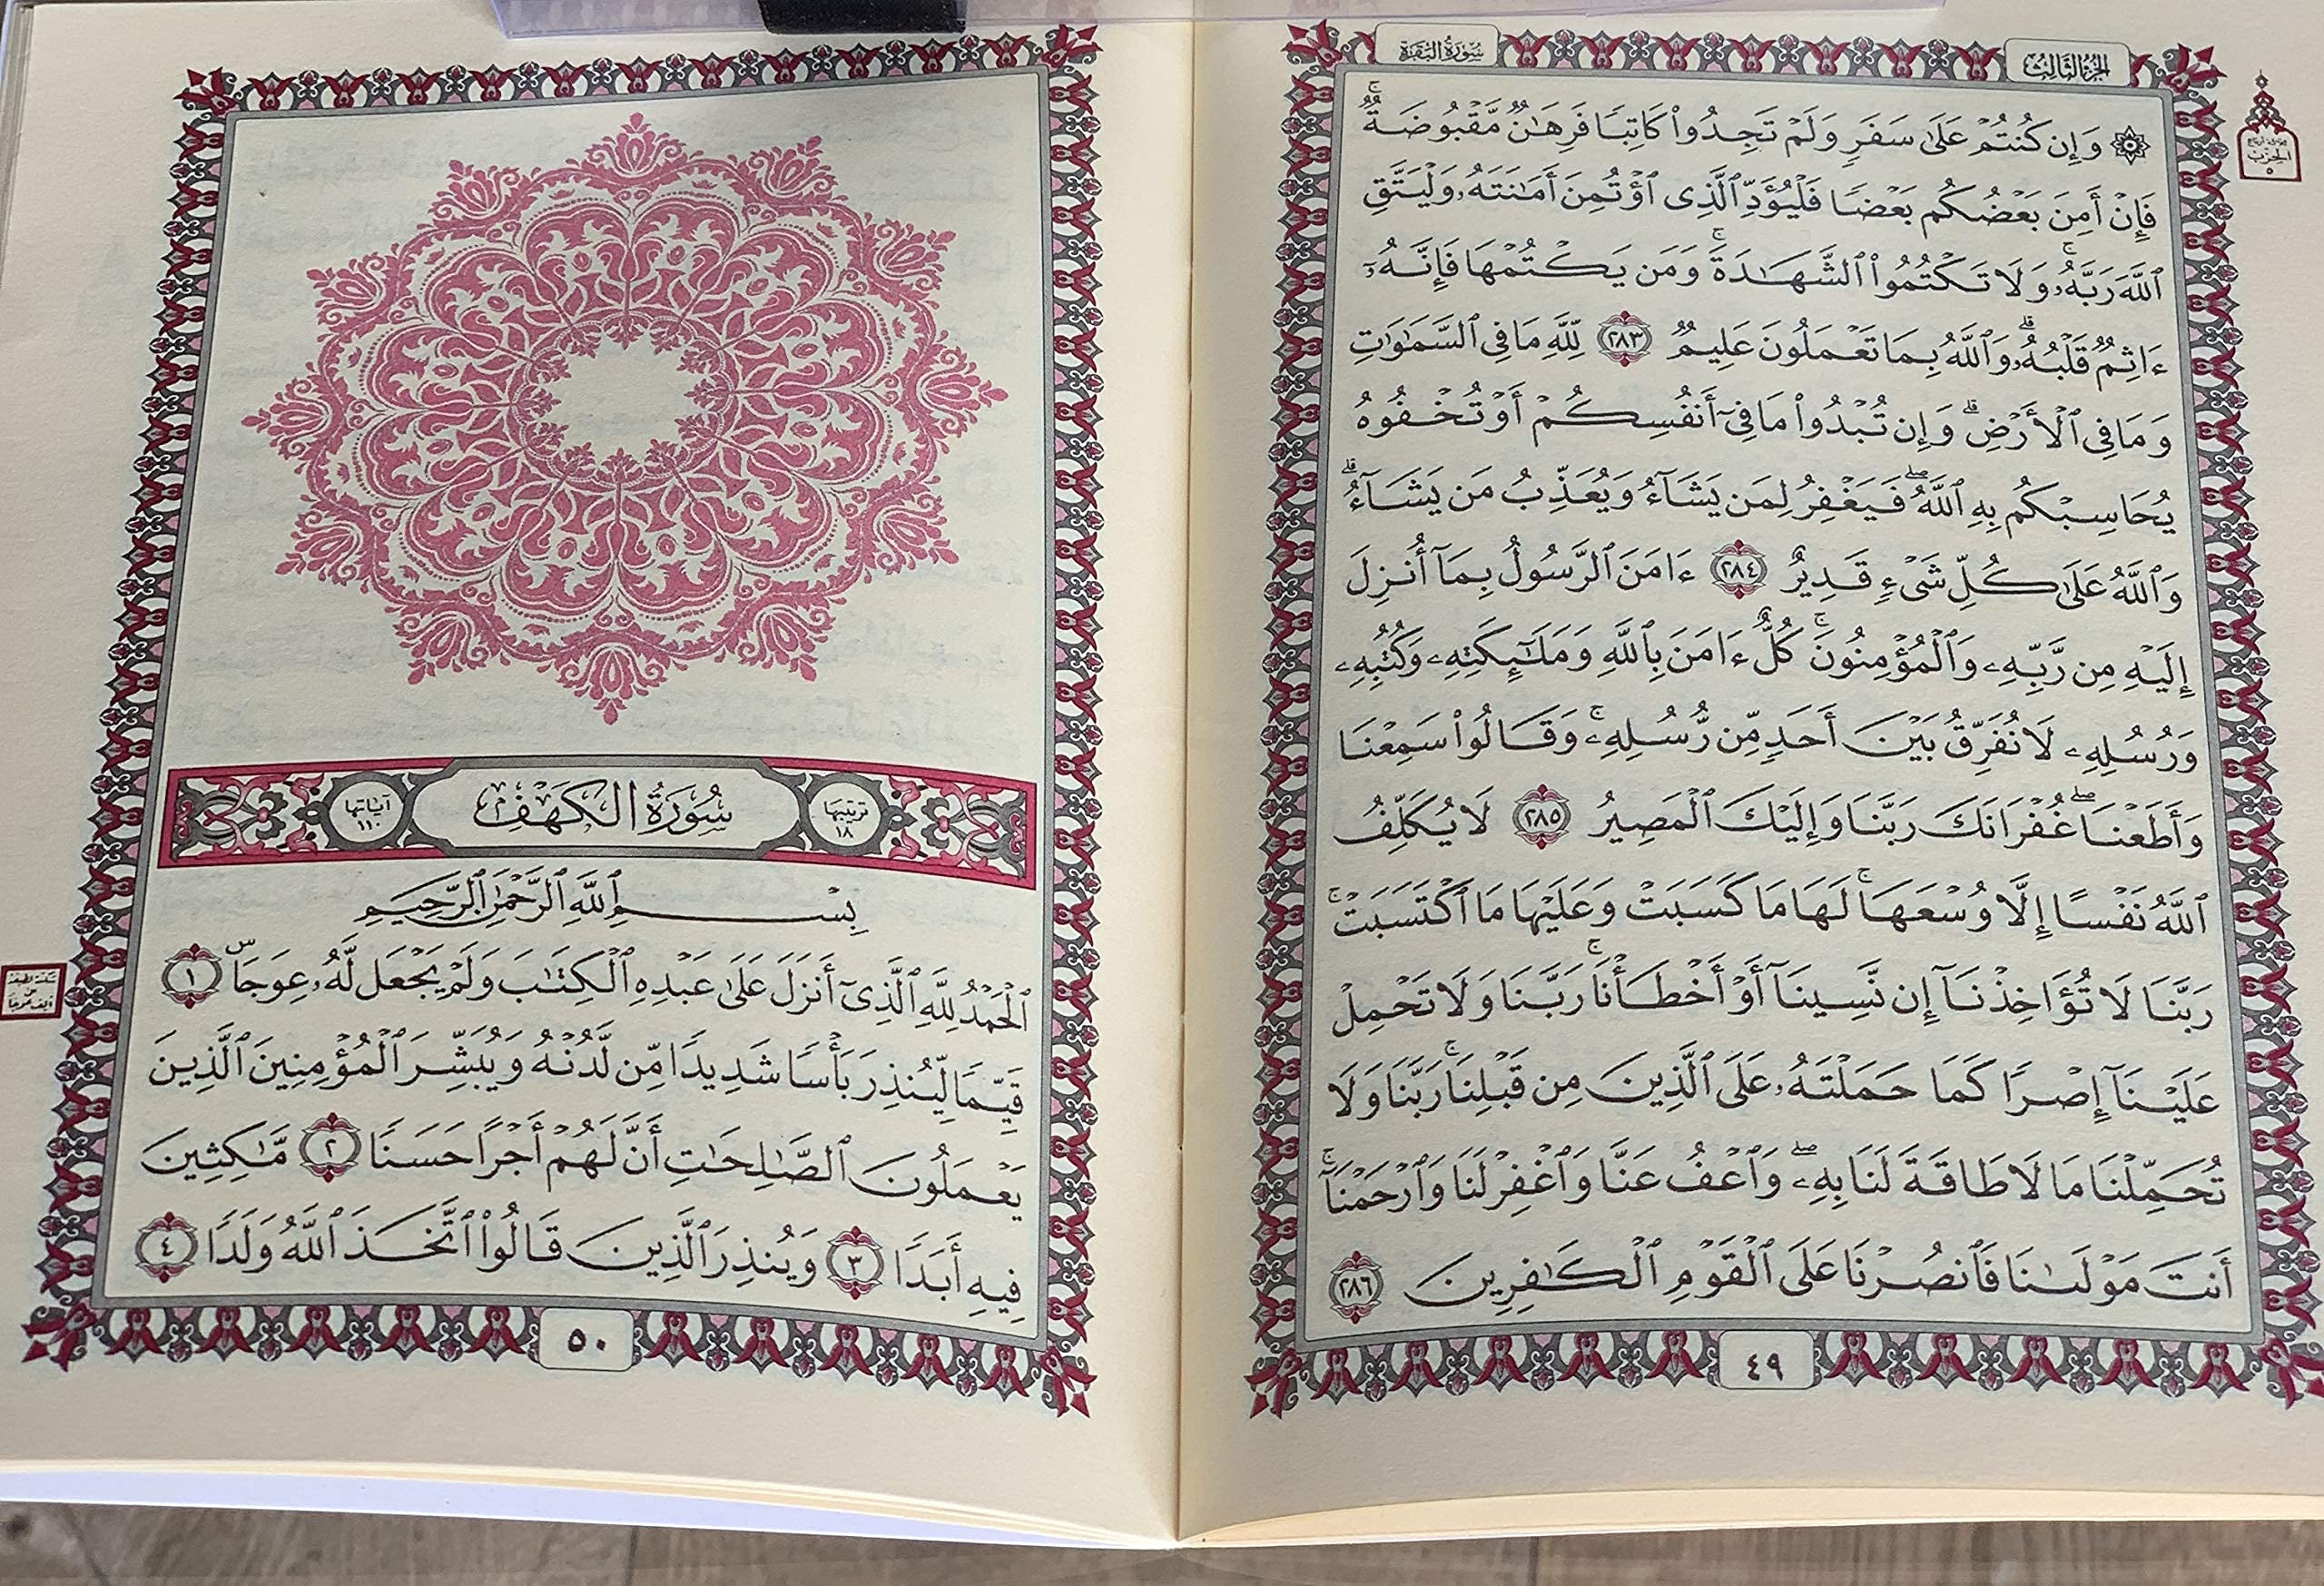 الجزء الثالث
سورة البقرة
الحزب
٥
۞ وَإِن كُنتُمْ عَلَىٰ سَفَرٍ وَلَمْ تَجِدُوا۟ كَاتِبًا فَرِهَـٰنٌ مَّقْبُوضَةٌ ۖ
فَإِنْ أَمِنَ بَعْضُكُم بَعْضًا فَلْيُؤَدِّ ٱلَّذِى ٱؤْتُمِنَ أَمَـٰنَتَهُۥ وَلْيَتَّقِ
ٱللَّهَ رَبَّهُۥ ۗ وَلَا تَكْتُمُوا۟ ٱلشَّهَـٰدَةَ ۚ وَمَن يَكْتُمْهَا فَإِنَّهُۥٓ
ءَاثِمٌ قَلْبُهُۥ ۗ وَٱللَّهُ بِمَا تَعْمَلُونَ عَلِيمٌ ٢٨٣ لِّلَّهِ مَا فِى ٱلسَّمَـٰوَٰتِ
وَمَا فِى ٱلْأَرْضِ ۗ وَإِن تُبْدُوا۟ مَا فِىٓ أَنفُسِكُمْ أَوْ تُخْفُوهُ
يُحَاسِبْكُم بِهِ ٱللَّهُ ۖ فَيَغْفِرُ لِمَن يَشَآءُ وَيُعَذِّبُ مَن يَشَآءُ ۗ
وَٱللَّهُ عَلَىٰ كُلِّ شَىْءٍ قَدِيرٌ ٢٨٤ ءَامَنَ ٱلرَّسُولُ بِمَآ أُنزِلَ
إِلَيْهِ مِن رَّبِّهِۦ وَٱلْمُؤْمِنُونَ ۚ كُلٌّ ءَامَنَ بِٱللَّهِ وَمَلَـٰٓئِكَتِهِۦ وَكُتُبِهِۦ
وَرُسُلِهِۦ لَا نُفَرِّقُ بَيْنَ أَحَدٍ مِّن رُّسُلِهِۦ ۚ وَقَالُوا۟ سَمِعْنَا
وَأَطَعْنَا ۖ غُفْرَانَكَ رَبَّنَا وَإِلَيْكَ ٱلْمَصِيرُ ٢٨٥ لَا يُكَلِّفُ
ٱللَّهُ نَفْسًا إِلَّا وُسْعَهَا ۚ لَهَا مَا كَسَبَتْ وَعَلَيْهَا مَا ٱكْتَسَبَتْ ۗ
رَبَّنَا لَا تُؤَاخِذْنَآ إِن نَّسِينَآ أَوْ أَخْطَأْنَا ۚ رَبَّنَا وَلَا تَحْمِلْ
عَلَيْنَآ إِصْرًا كَمَا حَمَلْتَهُۥ عَلَى ٱلَّذِينَ مِن قَبْلِنَا ۚ رَبَّنَا وَلَا
تُحَمِّلْنَا مَا لَا طَاقَةَ لَنَا بِهِۦ ۖ وَٱعْفُ عَنَّا وَٱغْفِرْ لَنَا وَٱرْحَمْنَآ ۚ
أَنتَ مَوْلَىٰنَا فَٱنصُرْنَا عَلَى ٱلْقَوْمِ ٱلْكَـٰفِرِينَ ٢٨٦
٤٩
ترتيبها ١٨
سورة الكهف
آياتها ١١٠
بِسْمِ ٱللَّهِ ٱلرَّحْمَـٰنِ ٱلرَّحِيمِ
ٱلْحَمْدُ لِلَّهِ ٱلَّذِىٓ أَنزَلَ عَلَىٰ عَبْدِهِ ٱلْكِتَـٰبَ وَلَمْ يَجْعَل لَّهُۥ عِوَجَاۜ ١
قَيِّمًا لِّيُنذِرَ بَأْسًا شَدِيدًا مِّن لَّدُنْهُ وَيُبَشِّرَ ٱلْمُؤْمِنِينَ ٱلَّذِينَ
يَعْمَلُونَ ٱلصَّـٰلِحَـٰتِ أَنَّ لَهُمْ أَجْرًا حَسَنًا ٢ مَّـٰكِثِينَ
فِيهِ أَبَدًا ٣ وَيُنذِرَ ٱلَّذِينَ قَالُوا۟ ٱتَّخَذَ ٱللَّهُ وَلَدًا ٤
٥٠